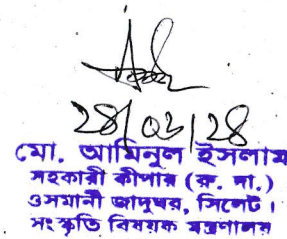 ২৪/০৩/২৪
মো. আমিনুল ইসলাম
সহকারী কীপার (রু. দা.)
ওসমানী জাদুঘর, সিলেট।
সংস্কৃতি বিষয়ক মন্ত্রণালয়